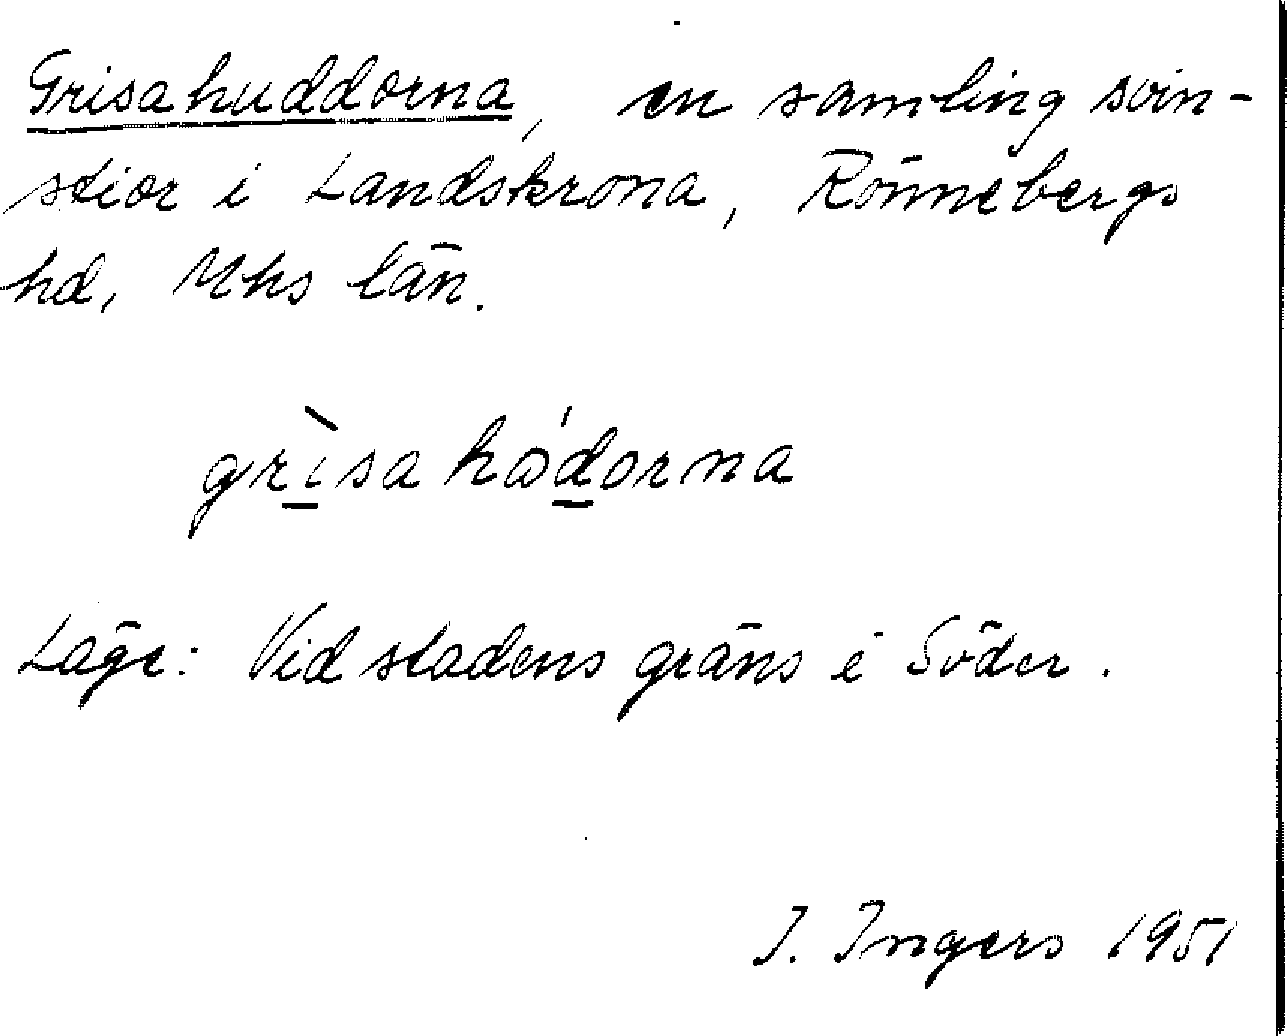 Grisahuddorna, en samling svin-
stior i Landskrona, Rönnebergs
hd, Mhs län.
grìsa hǿdorna
Läge: Vid stadens gräns i Söder.
I. Ingers 1951